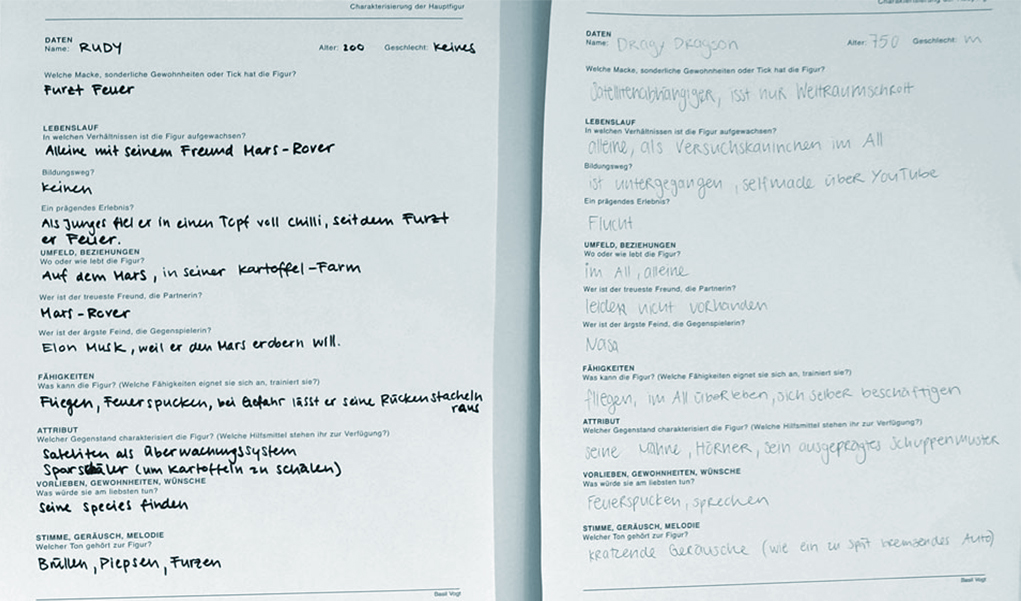 Charakterisierung der Hauptfigur
DATEN
Name: RUDY Alter: 200 Geschlecht: Keines
Welche Macke, sonderliche Gewohnheiten oder Tick hat die Figur?
Furzt Feuer
LEBENSLAUF
In welchen Verhältnissen ist die Figur aufgewachsen?
Alleine mit seinem Freund Mars-Rover
Bildungsweg?
Keinen
Ein prägendes Erlebnis?
Als Junges fiel er in einen Topf voll Chilli, seitdem Furzt
er Feuer.
UMFELD, BEZIEHUNGEN
Wo oder wie lebt die Figur?
Auf dem Mars, in seiner Kartoffel-Farm
Wer ist der treueste Freund, die Partnerin?
Mars-Rover
Wer ist der ärgste Feind, die Gegenspielerin?
Elon Musk, weil er den Mars erobern will.
FÄHIGKEITEN
Was kann die Figur? (Welche Fähigkeiten eignet sie sich an, trainiert sie?)
Fliegen, Feuerspucken, bei Gefahr lässt er seine Rückenstacheln
raus
ATTRIBUT
Welcher Gegenstand charakterisiert die Figur? (Welche Hilfsmittel stehen ihr zur Verfügung?)
Sateliten als Überwachungssystem
Sparschäler (um Kartoffeln zu schälen)
VORLIEBEN, GEWOHNHEITEN, WÜNSCHE
Was würde sie am liebsten tun?
Seine Species finden
STIMME, GERÄUSCH, MELODIE
Welcher Ton gehört zur Figur?
Brüllen, Piepsen, Furzen
Basil Vogt
Charakterisierung der Hauptfigur
DATEN
Name: Dragy Dragson Alter: 750 Geschlecht: m
Welche Macke, sonderliche Gewohnheiten oder Tick hat die Figur?
Satellitenabhängiger, isst nur Weltraumschrott
LEBENSLAUF
In welchen Verhältnissen ist die Figur aufgewachsen?
alleine, als Versuchskaninchen im All
Bildungsweg?
ist untergegangen, selfmade über YouTube
Ein prägendes Erlebnis?
Flucht
UMFELD, BEZIEHUNGEN
Wo oder wie lebt die Figur?
im All, alleine
Wer ist der treueste Freund, die Partnerin?
leider nicht vorhanden
Wer ist der ärgste Feind, die Gegenspielerin?
Nasa
FÄHIGKEITEN
Was kann die Figur? (Welche Fähigkeiten eignet sie sich an, trainiert sie?)
fliegen, im All überleben, sich selber beschäftigen
ATTRIBUT
Welcher Gegenstand charakterisiert die Figur? (Welche Hilfsmittel stehen ihr zur Verfügung?)
seine Mähne, Hörner, sein ausgeprägtes Schuppenmuster
VORLIEBEN, GEWOHNHEITEN, WÜNSCHE
Was würde sie am liebsten tun?
Feuerspucken, sprechen
STIMME, GERÄUSCH, MELODIE
Welcher Ton gehört zur Figur?
kratzende Geräusche (wie ein zu spät bremsendes Auto)
Basil Vogt